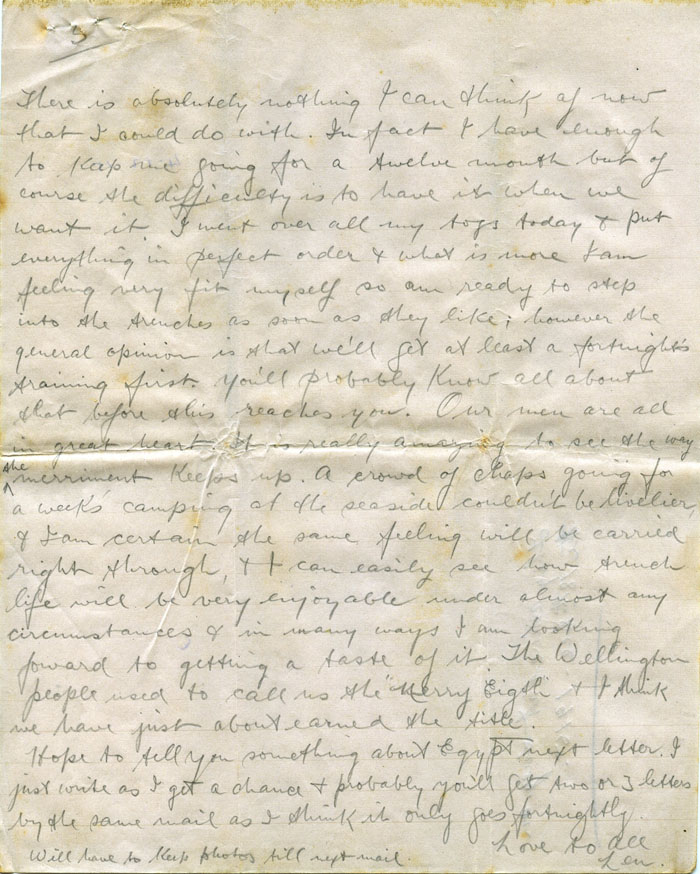 5
There is absolutely nothing I can think of now
that I could do with. In fact I have enough
to keep me going for a twelve month but of
course the difficulty is to have it when we
want it. I went over all my togs today & put
everything in perfect order & what is more I am
feeling very fit myself so am ready to step
into the trenches as soon as they like; however the
general opinion is that we'll get at least a fortnight's
training first. You'll probably know all about
that before this reaches you. Our men are all
in great heart. It is really amazing to see the way
the merriment keeps up. A crowd of chaps going for
a week's camping at the seaside couldn't be livelier,
& I am certain the same feeling will be carried
right through, & I can easily see how trench
life will be very enjoyable under almost any
circumstances & in many ways I am looking
forward to getting a taste of it. The Wellington
people used to call us the "Merry Eigth" & I think
we have just about earned the title.
Hope to tell you something about Egypt next letter. I
just write as I get a chance & probably you'll get two or 3 letters
by the same mail as I think it only goes fortnightly.
Love to all
Len.
Will have to keep photos till next mail.